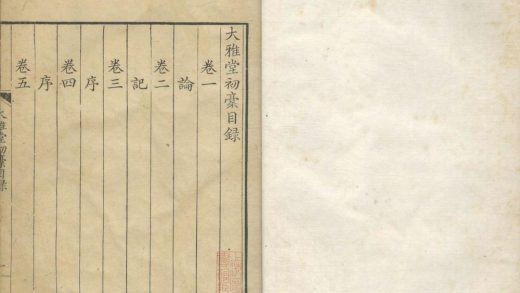 大雅堂初稾目録
卷一
論
卷二
記
卷三
序
卷四
序
卷五
大雅堂初稾目録